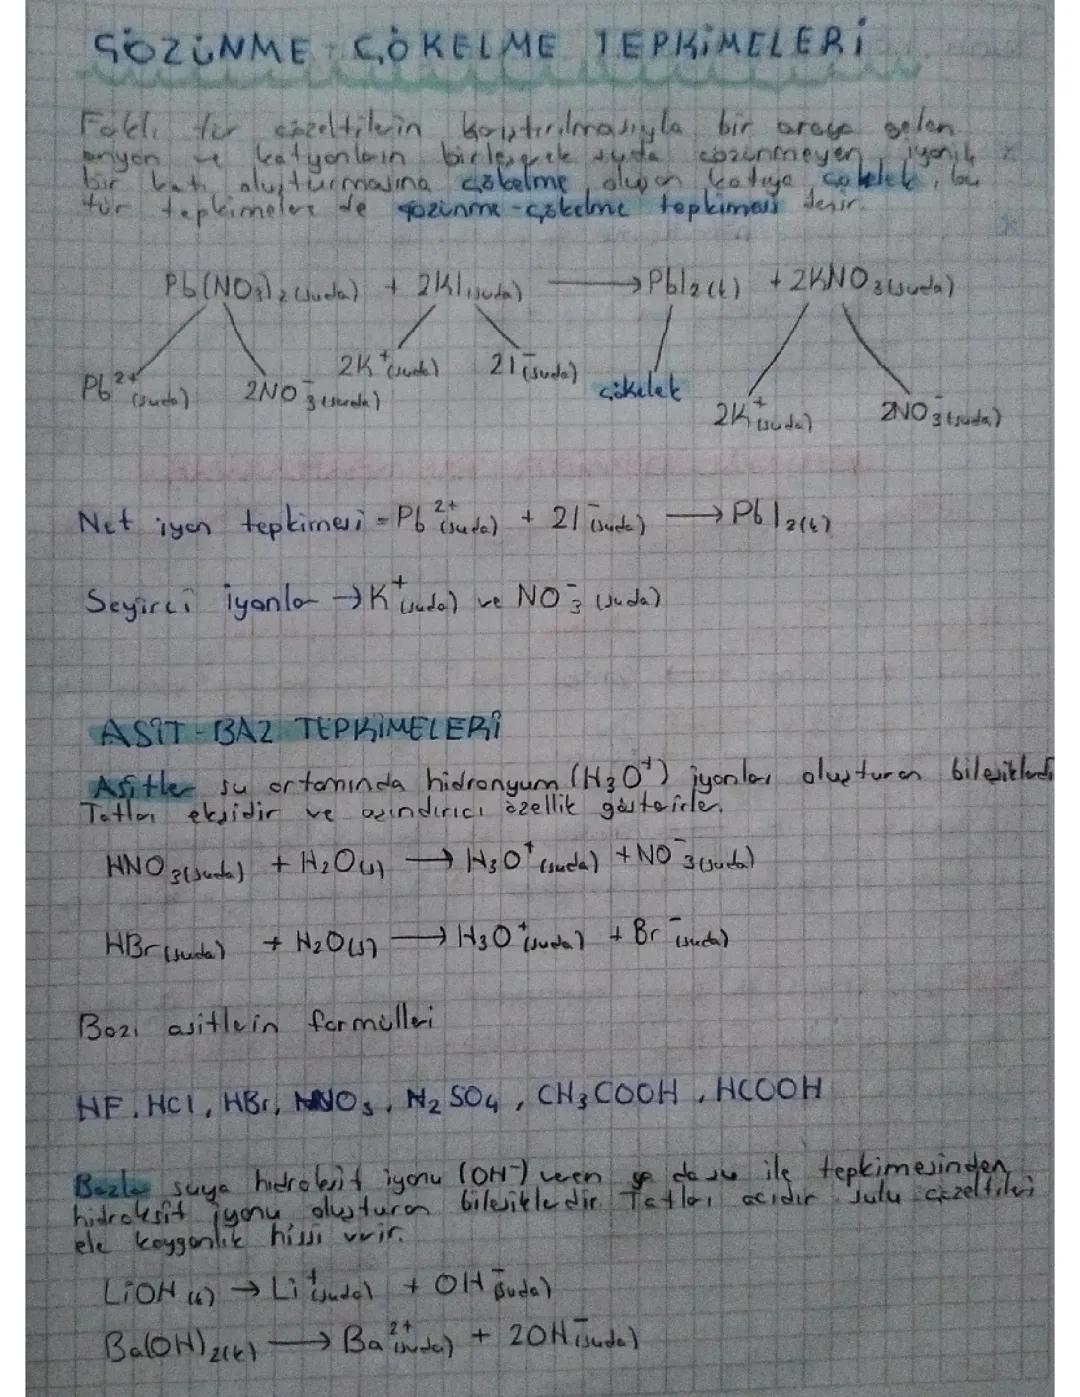 ÇÖZÜNME ÇÖKELME TEPKİMELERİ
Faklı tür çözeltilerin karıştırılmasıyla bir araya gelen
anyon ve katyonların birleşerek suda çözünmeyen iyonik
bir katı oluşturmasına çökelme, oluşan katıya çökelek, bu
tür tepkimelere de çözünme-çökelme tepkimesi denir.
Pb(NO3)2(suda) + 2KI(suda) → PbI2(k) + 2KNO3(suda)
Pb2+(suda) 2NO3-(suda) 2K+(suda) 2I-(suda) çökelek 2K+(suda) 2NO3-(suda)
Net iyon tepkimesi = Pb2+(suda) + 2I-(suda) → PbI2(k)
Seyirci iyonlar → K+(suda) ve NO3-(suda)
ASİT-BAZ TEPKİMELERİ
Asitler su ortamında hidronyum (H3O+) iyonları oluşturan bileşiklerdi
Tatları ekşidir ve aşındırıcı özellik gösterirler.
HNO3(suda) + H2O(s) → H3O+(suda) + NO3-(suda)
HBr(suda) + H2O(s) → H3O+(suda) + Br-(suda)
Bazı asitlein formülleri
HF, HCl, HBr, HNO3, H2SO4, CH3COOH, HCOOH
Bazlar suya hidroksit iyonu (OH-) veren ya da su ile tepkimesinden
hidroksit iyonu oluşturan bileşiklerdir. Tatları acıdır sulu çözeltileri
ele kayganlık hissi verir.
LiOH(k) → Li+(suda) + OH-(suda)
Ba(OH)2(k) → Ba2+(suda) + 2OH-(suda)